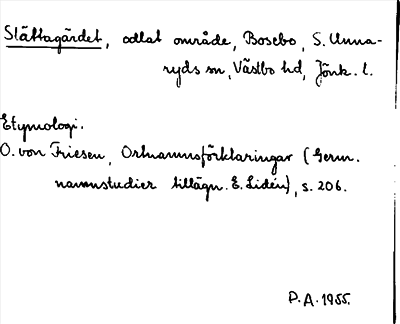 Slättagärdet, odlat område, Bosebo, S. Unna-
ryds sn, Västbo hd, Jönk. l.
Etymologi.
O. von Friesen, Ortnamnsförklaringar (Germ.
namnstudier tillägn. E. Lidén), s. 206.
P.A. 1955.